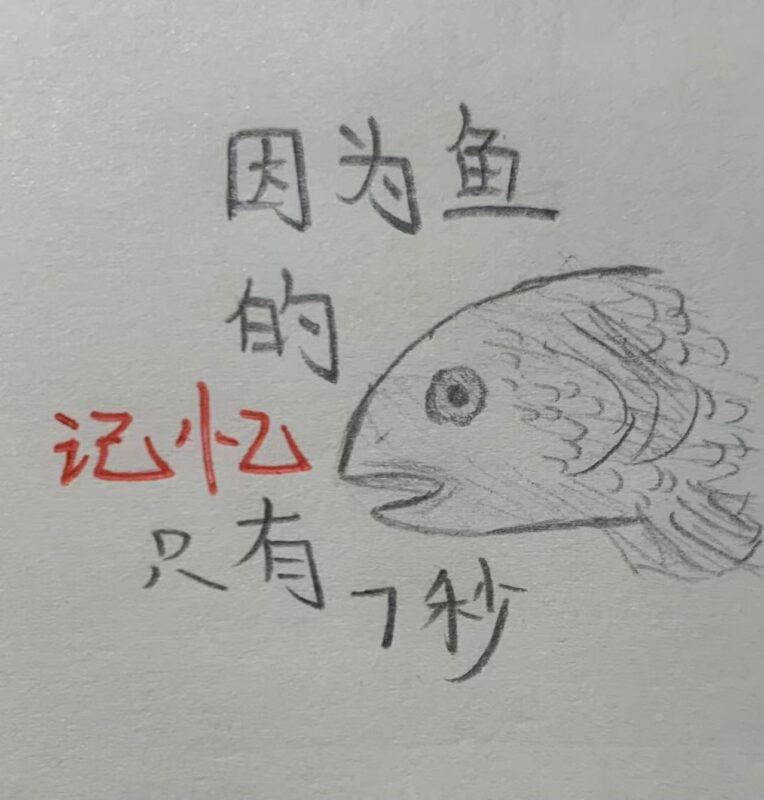 因为鱼
的
记忆
只有
7秒